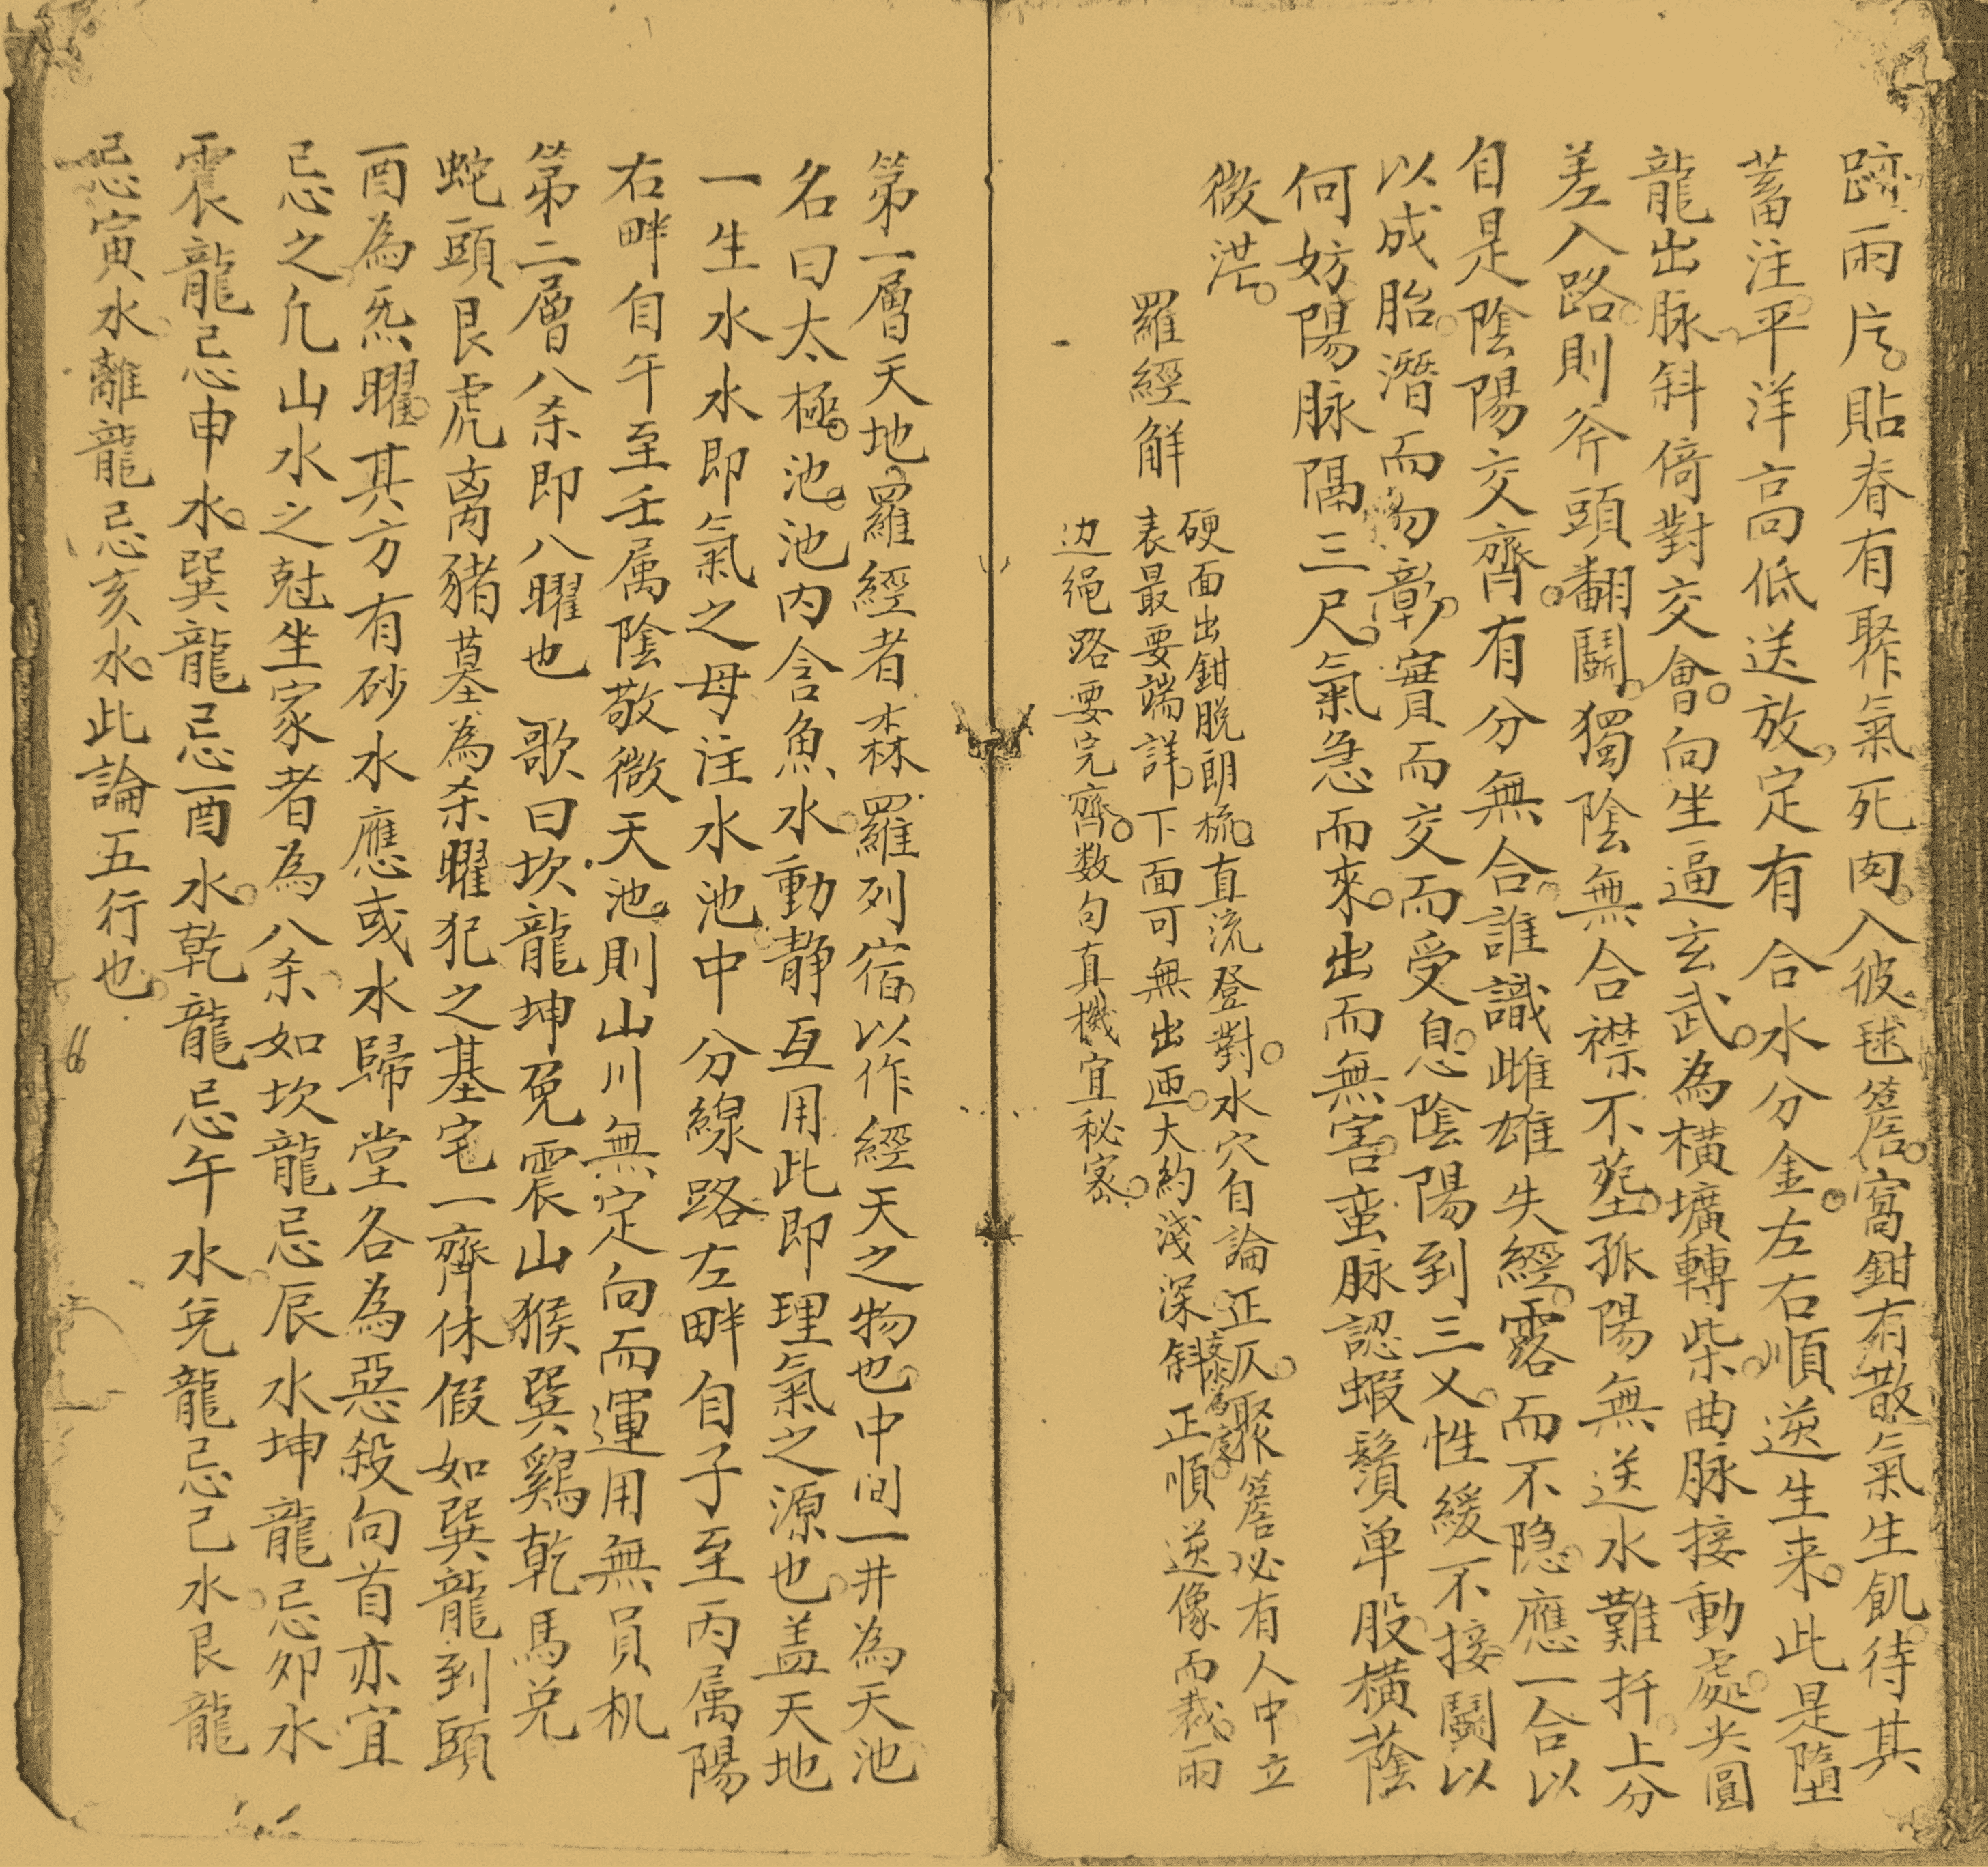 跡兩片貼脊有聚氣死肉入彼毬簷窩鉗有散氣生飢待其
蓄注平洋高低送放定有合水分金左右順逆生来此是墮
龍出脉斜倚對交會向坐逼玄武為橫壙轉柴曲脉接動處尖圓
差入路則斧頭翻鬪獨陰無合襟不塟孤陽無送水難扦上分
自是陰陽交齊有分無合誰識雌雄失經露而不隐應一合以
以成胎潛而勿彰實而交而受息陰陽到三义性緩不接鬪以
何妨陽脉隔三尺氣急而來出而無害蛮脉認蝦鬚单股橫蔭
微茫
羅經解
硬面出鉗脫朗梳直流登對水穴自論正仄聚簷必有人中立
表最要端詳下面可無出匝大約淺深斜正順逆像而裁兩
边绳路要完齊数句真機宜秘密
第一層天地羅經者森羅列宿以作經天之物也中间一井為天池
名曰太極池池内含魚水動静互用此即理氣之源也盖天地
一生水水即氣之母注水池中分線路左畔自子至丙属陽
右畔自午至壬属陰敬微天池則山川無定向而運用無員机
第二層八杀即八曜也 歌曰坎龍坤兔震山猴巽鷄乾馬兑
蛇頭艮虎离豬墓為杀曜犯之基宅一齊休假如巽龍到頭
酉為炁曜其方有砂水應或水歸堂各為惡殺向首亦宜
忌之凢山水之尅坐家者為八杀如坎龍忌辰水坤龍忌卯水
震龍忌申水巽龍忌酉水乾龍忌午水兑龍忌己水艮龍
忌寅水離龍忌亥水此論五行也